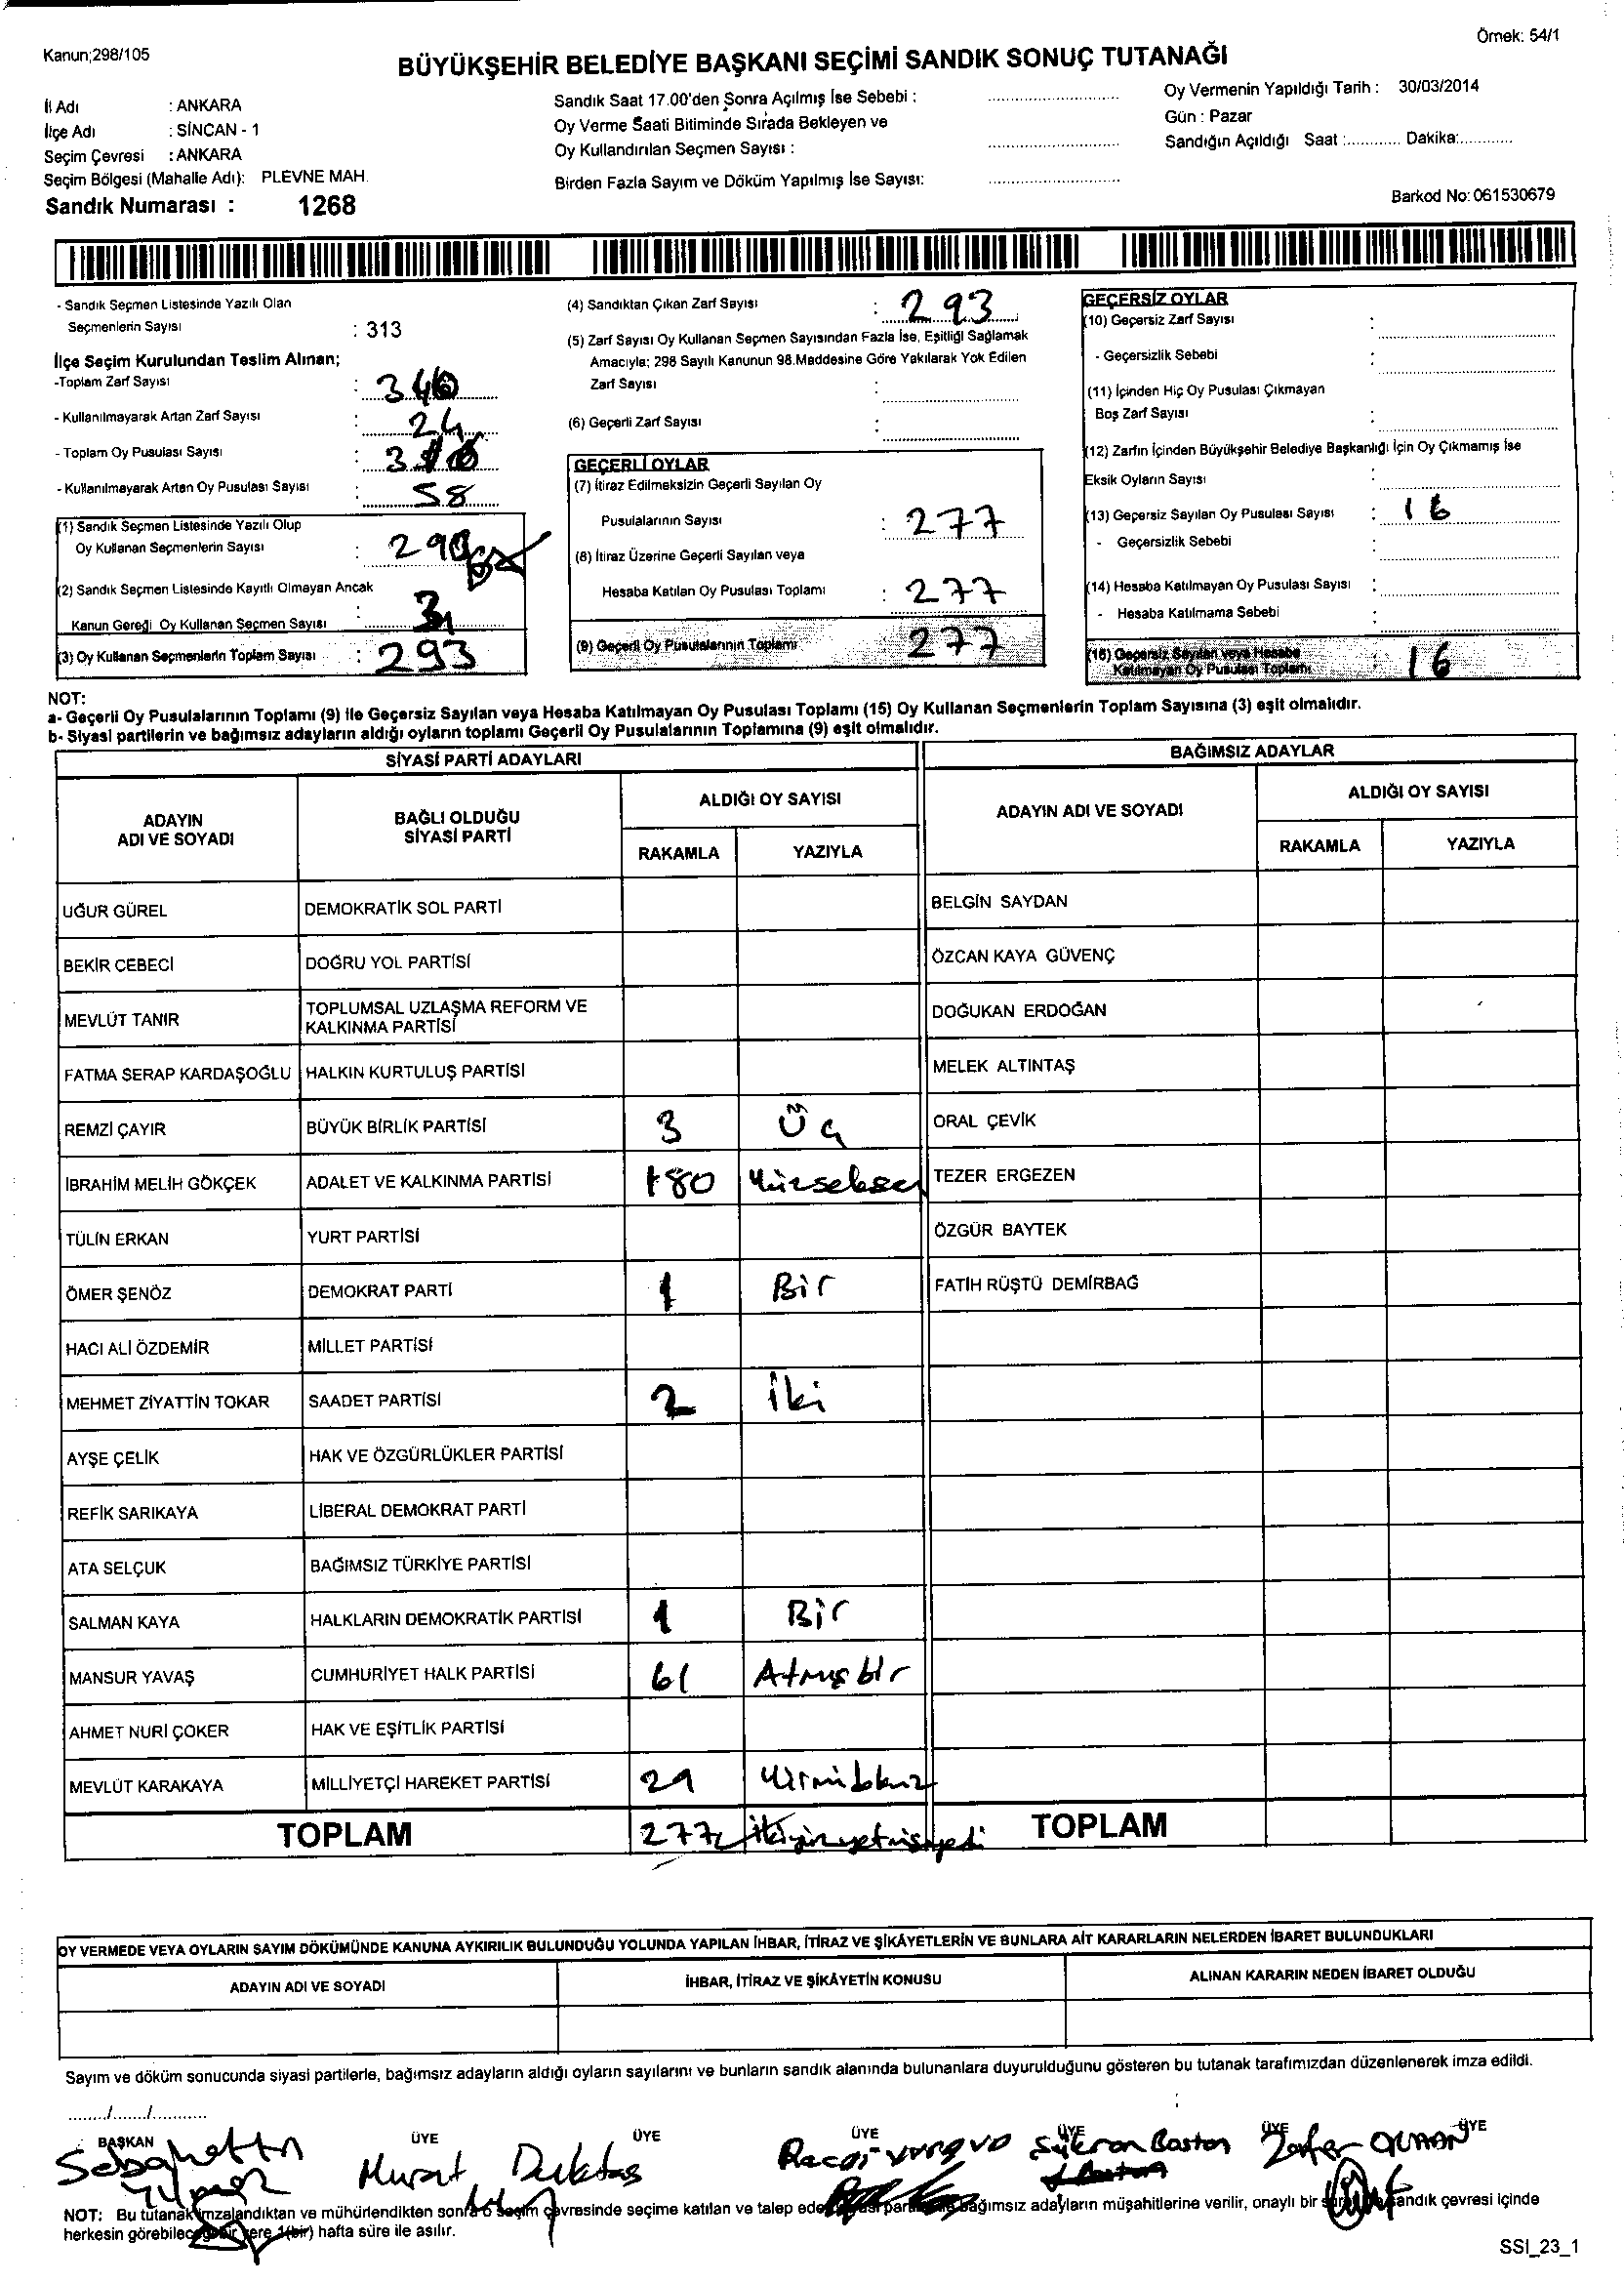 Örnek: 54/1
Kanun;298/105
BÜYÜKŞEHİR BELEDİYE BAŞKANI SEÇİMİ SANDIK SONUÇ TUTANAĞI
İl Adı : ANKARA
İlçe Adı : SİNCAN - 1
Seçim Çevresi : ANKARA
Seçim Bölgesi (Mahalle Adı): PLEVNE MAH.
Sandık Numarası : 1268
Sandık Saat 17.00'den Şonra Açılmış İse Sebebi :
Oy Verme Saati Bitiminde Sırada Bekleyen ve
Oy Kullandırılan Seçmen Sayısı :
Birden Fazla Sayım ve Döküm Yapılmış İse Sayısı:
Oy Vermenin Yapıldığı Tarih : 30/03/2014
Gün : Pazar
Sandığın Açıldığı Saat :............ Dakika:............
Barkod No: 061530679
- Sandık Seçmen Listesinde Yazılı Olan
Seçmenlerin Sayısı : 313
İlçe Seçim Kurulundan Teslim Alınan;
-Toplam Zarf Sayısı :
- Kullanılmayarak Artan Zarf Sayısı : 24
- Toplam Oy Pusulası Sayısı :
- Kullanılmayarak Artan Oy Pusulası Sayısı : 58
(1) Sandık Seçmen Listesinde Yazılı Olup
Oy Kullanan Seçmenlerin Sayısı : 290
(2) Sandık Seçmen Listesinde Kayıtlı Olmayan Ancak
Kanun Gereği Oy Kullanan Seçmen Sayısı : 3
(3) Oy Kullanan Seçmenlerin Toplam Sayısı : 293
(4) Sandıktan Çıkan Zarf Sayısı : 293
(5) Zarf Sayısı Oy Kullanan Seçmen Sayısından Fazla İse, Eşitliği Sağlamak
Amacıyla; 298 Sayılı Kanunun 98.Maddesine Göre Yakılarak Yok Edilen
Zarf Sayısı :
(6) Geçerli Zarf Sayısı :
GEÇERLİ OYLAR
(7) İtiraz Edilmeksizin Geçerli Sayılan Oy
Pusulalarının Sayısı : 277
(8) İtiraz Üzerine Geçerli Sayılan veya
Hesaba Katılan Oy Pusulası Toplamı : 277
(9) Geçerli Oy Pusulalarının Toplamı 277
GEÇERSİZ OYLAR
(10) Geçersiz Zarf Sayısı :
- Geçersizlik Sebebi :
(11) İçinden Hiç Oy Pusulası Çıkmayan
Boş Zarf Sayısı :
(12) Zarfın İçinden Büyükşehir Belediye Başkanlığı İçin Oy Çıkmamış İse
Eksik Oyların Sayısı :
(13) Geçersiz Sayılan Oy Pusulası Sayısı : 16
- Geçersizlik Sebebi :
(14) Hesaba Katılmayan Oy Pusulası Sayısı :
- Hesaba Katılmama Sebebi :
(15) Geçersiz Sayılan veya Hesaba
Katılmayan Oy Pusulası Toplamı : 16
NOT:
a- Geçerli Oy Pusulalarının Toplamı (9) ile Geçersiz Sayılan veya Hesaba Katılmayan Oy Pusulası Toplamı (15) Oy Kullanan Seçmenlerin Toplam Sayısına (3) eşit olmalıdır.
b- Siyasi partilerin ve bağımsız adayların aldığı oyların toplamı Geçerli Oy Pusulalarının Toplamına (9) eşit olmalıdır.
SİYASİ PARTİ ADAYLARI
ADAYIN ADI VE SOYADI BAĞLI OLDUĞU SİYASİ PARTİ ALDIĞI OY SAYISI
RAKAMLA YAZIYLA
UĞUR GÜREL DEMOKRATİK SOL PARTİ
BEKİR CEBECİ DOĞRU YOL PARTİSİ
MEVLÜT TANIR TOPLUMSAL UZLAŞMA REFORM VE KALKINMA PARTİSİ
FATMA SERAP KARDAŞOĞLU HALKIN KURTULUŞ PARTİSİ
REMZİ ÇAYIR BÜYÜK BİRLİK PARTİSİ 3 Üç
İBRAHİM MELİH GÖKÇEK ADALET VE KALKINMA PARTİSİ 180 Yüzseksen
TÜLİN ERKAN YURT PARTİSİ
ÖMER ŞENÖZ DEMOKRAT PARTİ 1 Bir
HACI ALİ ÖZDEMİR MİLLET PARTİSİ
MEHMET ZİYATTİN TOKAR SAADET PARTİSİ 2 İki
AYŞE ÇELİK HAK VE ÖZGÜRLÜKLER PARTİSİ
REFİK SARIKAYA LİBERAL DEMOKRAT PARTİ
ATA SELÇUK BAĞIMSIZ TÜRKİYE PARTİSİ
SALMAN KAYA HALKLARIN DEMOKRATİK PARTİSİ 1 Bir
MANSUR YAVAŞ CUMHURİYET HALK PARTİSİ 61 Atmışbir
AHMET NURİ ÇOKER HAK VE EŞİTLİK PARTİSİ
MEVLÜT KARAKAYA MİLLİYETÇİ HAREKET PARTİSİ 29 Yirmidokuz
TOPLAM 277 İkiyüzyetmişyedi
BAĞIMSIZ ADAYLAR
ADAYIN ADI VE SOYADI ALDIĞI OY SAYISI
RAKAMLA YAZIYLA
BELGİN SAYDAN
ÖZCAN KAYA GÜVENÇ
DOĞUKAN ERDOĞAN
MELEK ALTINTAŞ
ORAL ÇEVİK
TEZER ERGEZEN
ÖZGÜR BAYTEK
FATİH RÜŞTÜ DEMİRBAĞ
TOPLAM
OY VERMEDE VEYA OYLARIN SAYIM DÖKÜMÜNDE KANUNA AYKIRILIK BULUNDUĞU YOLUNDA YAPILAN İHBAR, İTİRAZ VE ŞİKÂYETLERİN VE BUNLARA AİT KARARLARIN NELERDEN İBARET BULUNDUKLARI
ADAYIN ADI VE SOYADI İHBAR, İTİRAZ VE ŞİKÂYETİN KONUSU ALINAN KARARIN NEDEN İBARET OLDUĞU
Sayım ve döküm sonucunda siyasi partilerle, bağımsız adayların aldığı oyların sayılarını ve bunların sandık alanında bulunanlara duyurulduğunu gösteren bu tutanak tarafımızdan düzenlenerek imza edildi.
......../......../...........
BAŞKAN ÜYE ÜYE ÜYE ÜYE ÜYE ÜYE
Sebahattin Yılmaz Murat Şükran Bastan Zafer
NOT: Bu tutanak imzalandıktan ve mühürlendikten sonra o seçim çevresinde seçime katılan ve talep eden siyasi parti bağımsız adayların müşahitlerine verilir, onaylı bir sandık çevresi içinde
herkesin görebileceği bir yere 1(bir) hafta süre ile asılır.
SSI_23_1